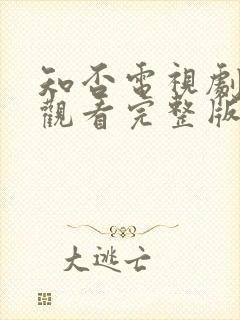 知否電視劇
觀看完整版
大逃亡